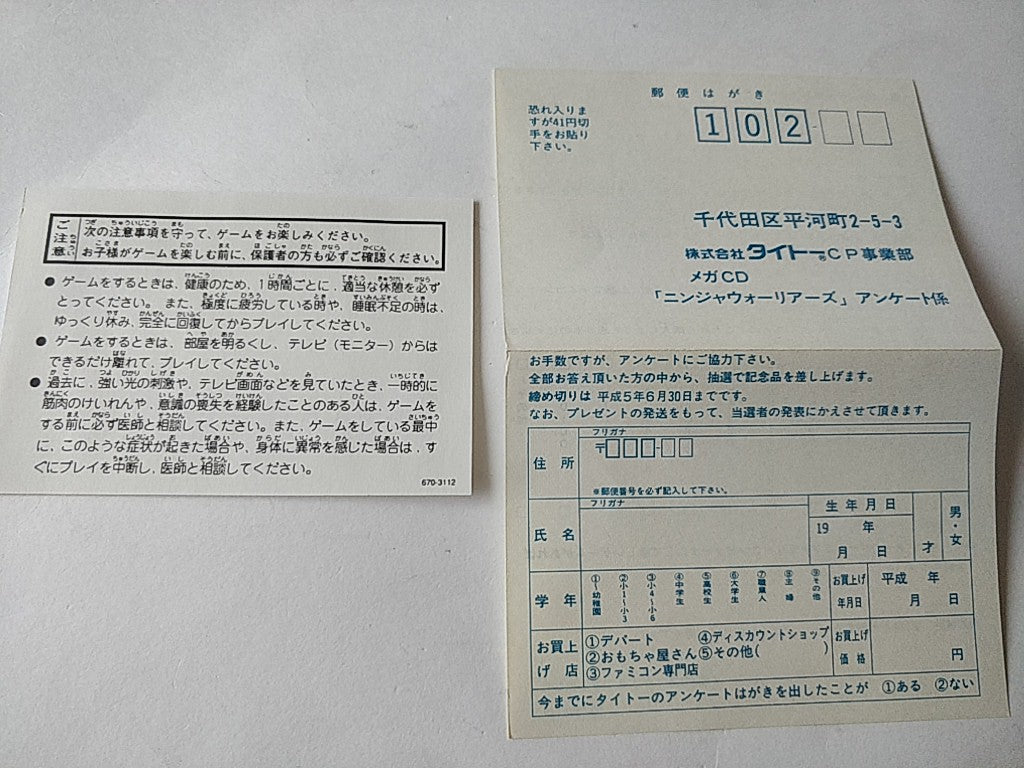 ご注意
次の注意事項を守って、ゲームをお楽しみください。
お子様がゲームを楽しむ前に、保護者の方も必ずご確認ください。
● ゲームをするときは、健康のため、1時間ごとに、適当な休憩を必ず
とってください。また、極度に疲労している時や、睡眠不足の時は、
ゆっくり休み、完全に回復してからプレイしてください。
● ゲームをするときは、部屋を明るくし、テレビ(モニター)からは
できるだけ離れて、プレイしてください。
● 過去に、強い光の刺激や、テレビ画面などを見ていたとき、一時的に
筋肉のけいれんや、意識の喪失を経験したことのある人は、ゲームを
する前に必ず医師と相談してください。また、ゲームをしている最中
に、このような症状が起きた場合や、身体に異常を感じた場合は、す
ぐにプレイを中断し、医師と相談してください。
670-3112
郵便はがき
恐れ入りま
すが41円切
手をお貼り
下さい。
102-
千代田区平河町2-5-3
株式会社タイトー®CP事業部
メガCD
「ニンジャウォーリアーズ」アンケート係
お手数ですが、アンケートにご協力下さい。
全部お答え頂いた方の中から、抽選で記念品を差し上げます。
締め切りは 平成5年6月30日までです。
なお、プレゼントの発送をもって、当選者の発表にかえさせて頂きます。
住所
フリガナ
〒
※郵便番号を必ず記入して下さい。
氏名
フリガナ
生年月日
19 年
月 日
才
男・女
学年
①〜幼稚園
②小1〜小3
③小4〜小6
④中学生
⑤高校生
⑥大学生
⑦職業人
⑧主婦
⑨その他
お買上げ
年月日
平成 年
月 日
お買上
げ店
①デパート ④ディスカウントショップ
②おもちゃ屋さん ⑤その他( )
③ファミコン専門店
お買上げ
価格
円
今までにタイトーのアンケートはがきを出したことが ①ある ②ない